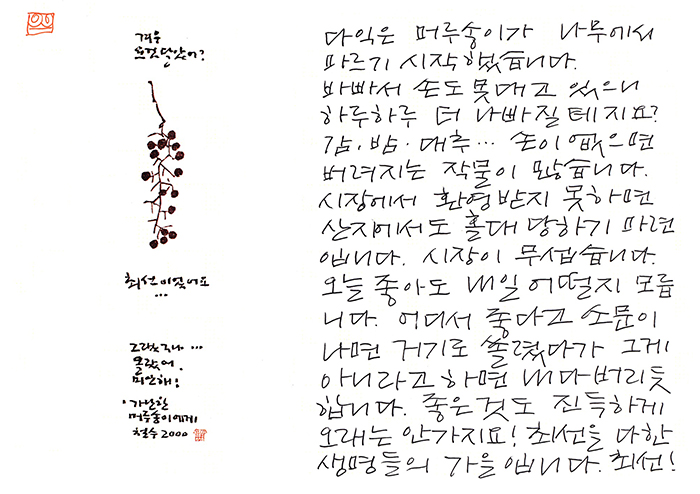 겨우
요것 달았어?
최선이었어요
...
그랬구나 ...
몰랐어.
미안해!
· 가난한
머루송이에게
철수 2000
다 익은 머루송이가 나무에서
마르기 시작했습니다.
바빠서 손도 못대고 있으니
하루하루 더 나빠질 테지요?
감·밤·대추… 손이 없으면
버려지는 작물이 많습니다.
시장에서 환영받지 못하면
산지에서도 홀대 당하기 마련
입니다. 시장이 무섭습니다.
오늘 좋아도 내일 어떨지 모릅
니다. 어디서 좋다고 소문이
나면 거기로 쏠렸다가 그게
아니라고 하면 내다버리듯
합니다. 좋은것도 진득하게
오래는 안가지요! 최선을 다한
생명들의 가을입니다. 최선!